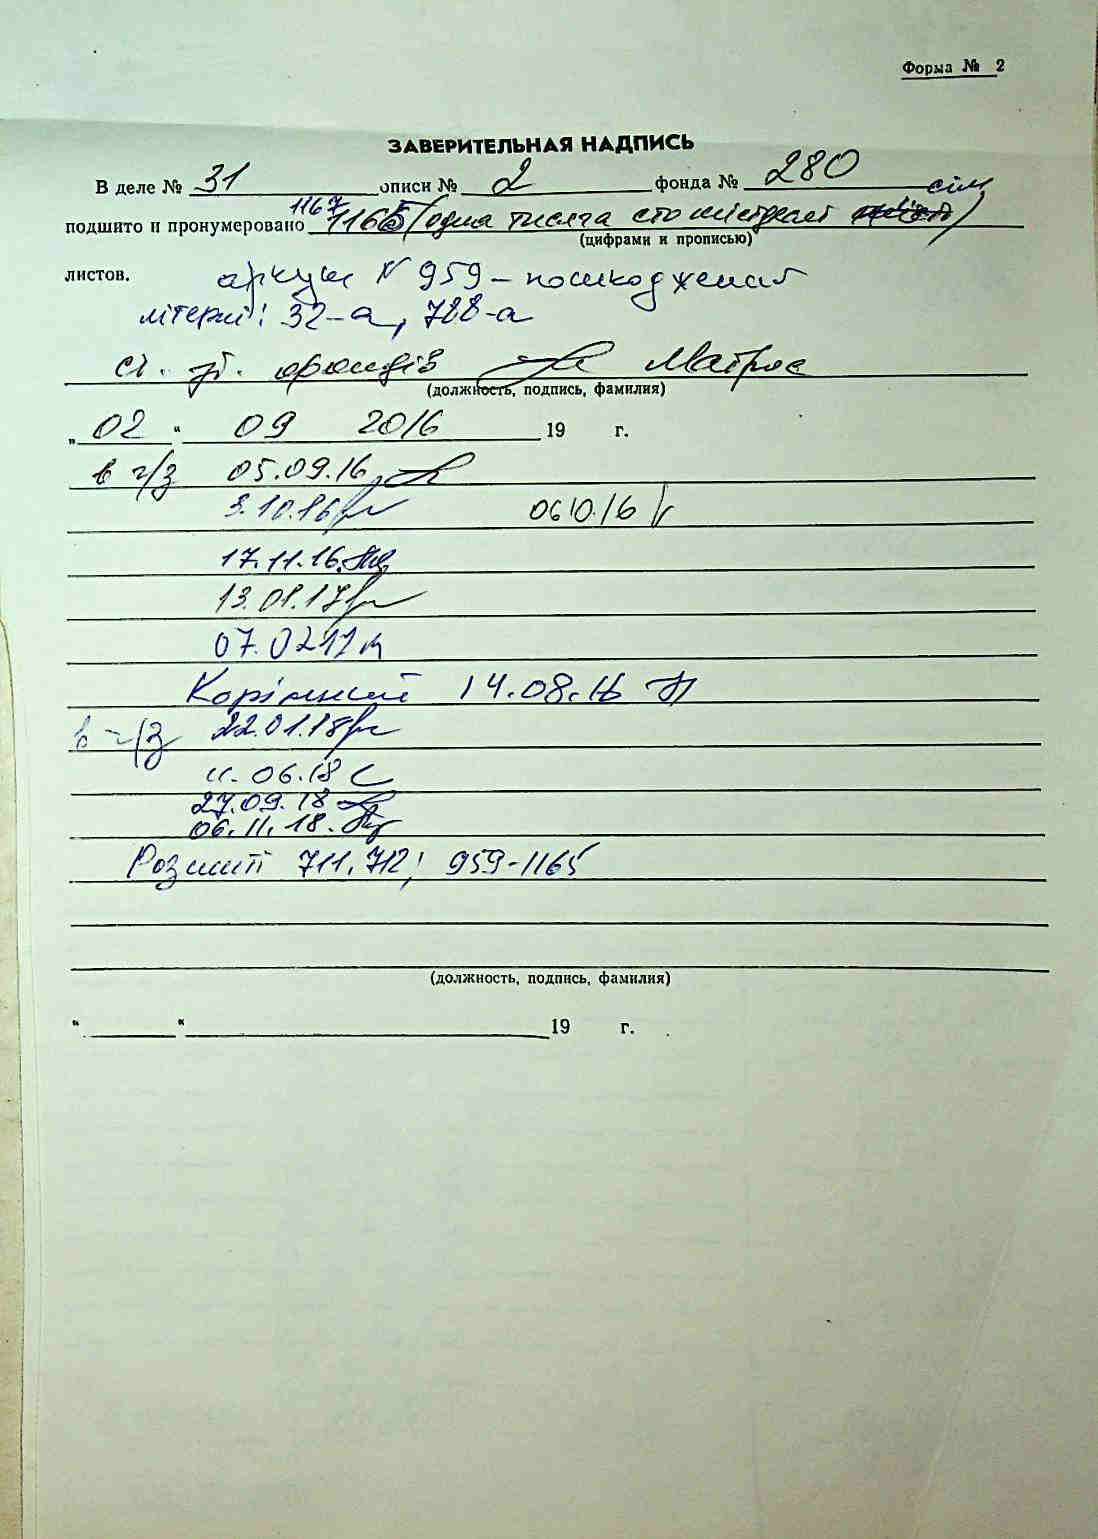 Форма № 2
ЗАВЕРИТЕЛЬНАЯ НАДПИСЬ
В деле № 31 описи № 2 фонда № 280
сім
1167
подшито и пронумеровано 1165 (одна тисяча сто шістдесят)
(цифрами и прописью)
листов. аркуш N 959 – пошкоджений
літерні: 32-а, 788-а
ст. фондів Матрос
(должность, подпись, фамилия)
„ 02 “ 09 2016 19 г.
в ч/з 05.09.16
3.10.16 06.10.16
17.11.16
13.01.17
07.02.17
14.08.16
в ч/з 22.01.18
11.06.18
27.09.18
06.11.18.
Розшиті 711, 712; 959-1165
(должность, подпись, фамилия)
“ “ 19 г.